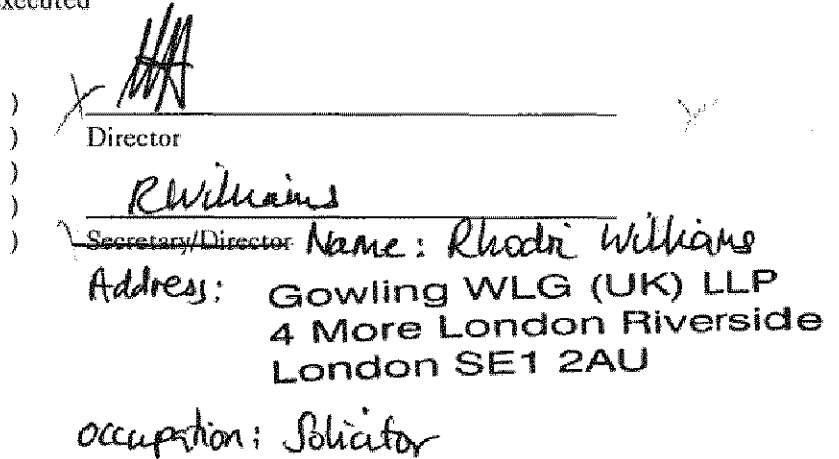 executed
)
)
Director
)
)
RWilliams
)
Secretary/Director Name: Rhodri Williams
Address: Gowling WLG (UK) LLP
4 More London Riverside
London SE1 2AU
occupation: Solicitor